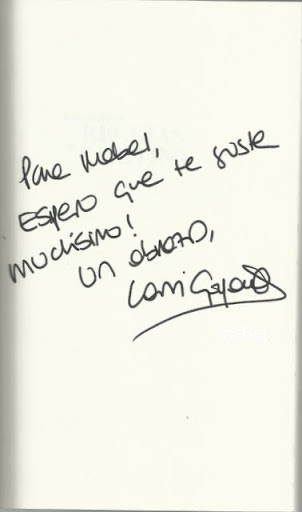 Para Mabel,
Espero que te guste
muchísimo!
Un abrazo,